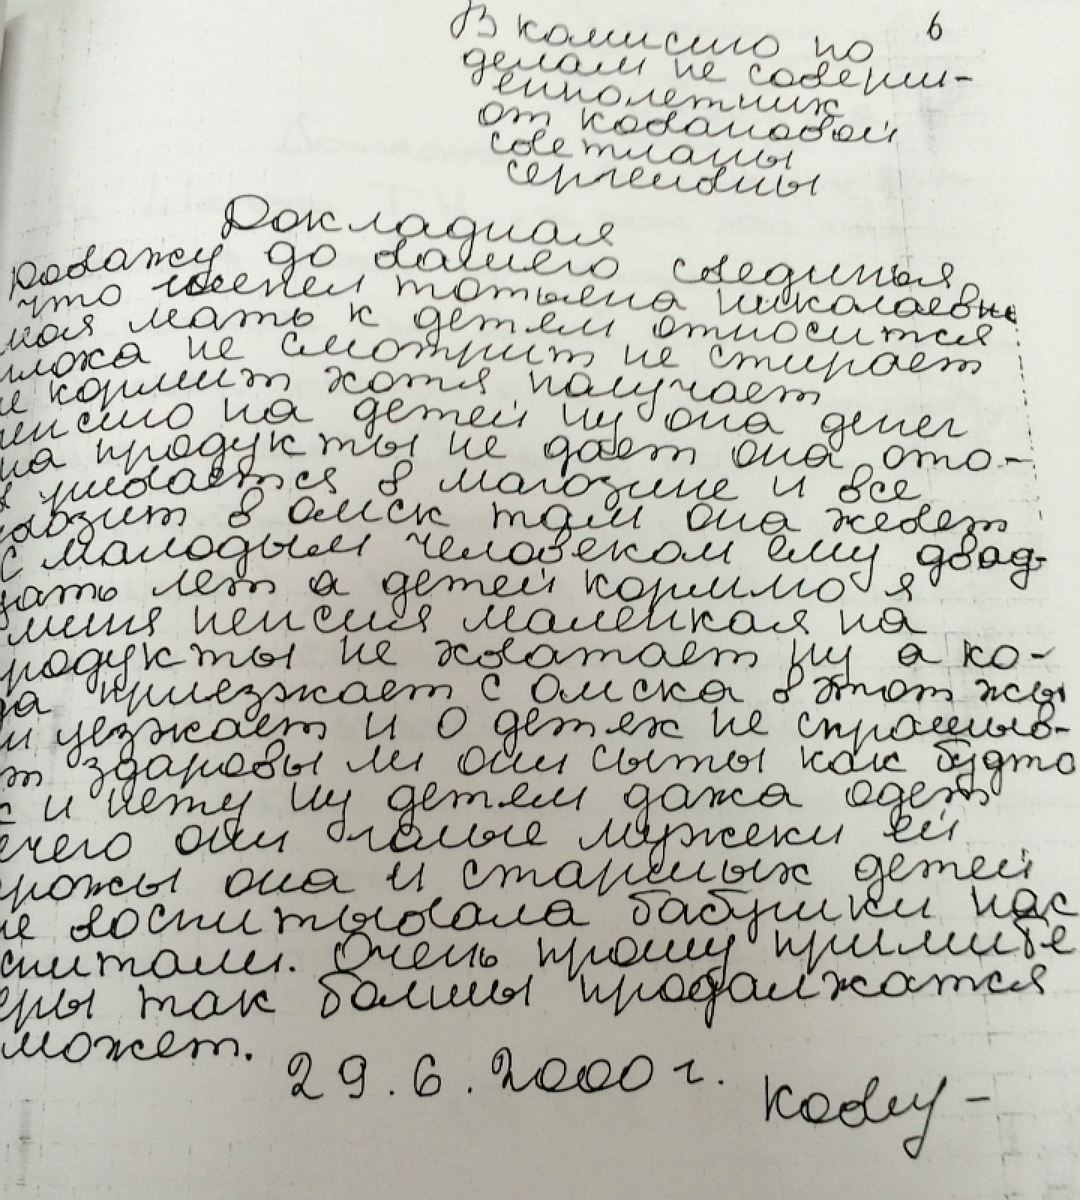 6
В комисию по
делам не соверш-
еннолетник
от ковановой
светланы
сергеивны
Докладная
доважу до вашего свединья
что николаевне
мая мать к детям относится
плоха не смотрит не стирает
не кормит хотя палучает
пенсию на детей ну она денег
на продукты не дает она ото-
варивается в магозине и все
возит в омск там она жевет
с малодым человеком ему двад-
цать лет а детей кормлю я
миня пенсия маленкая на
родукты не хватает ну а ко-
да приезжает с омска в этот жы
и уезжает и о детях не спрашыв-
т здаровы ли они сыты как будто
х и нету ну детям дажа одет
ечего они голые мужеки ей
рожы она и старшых детей
не воспитывала бабушки нас
спитали. Очень прошу примите
еры так болшы продалжатся
может.
29.6.2000 г.